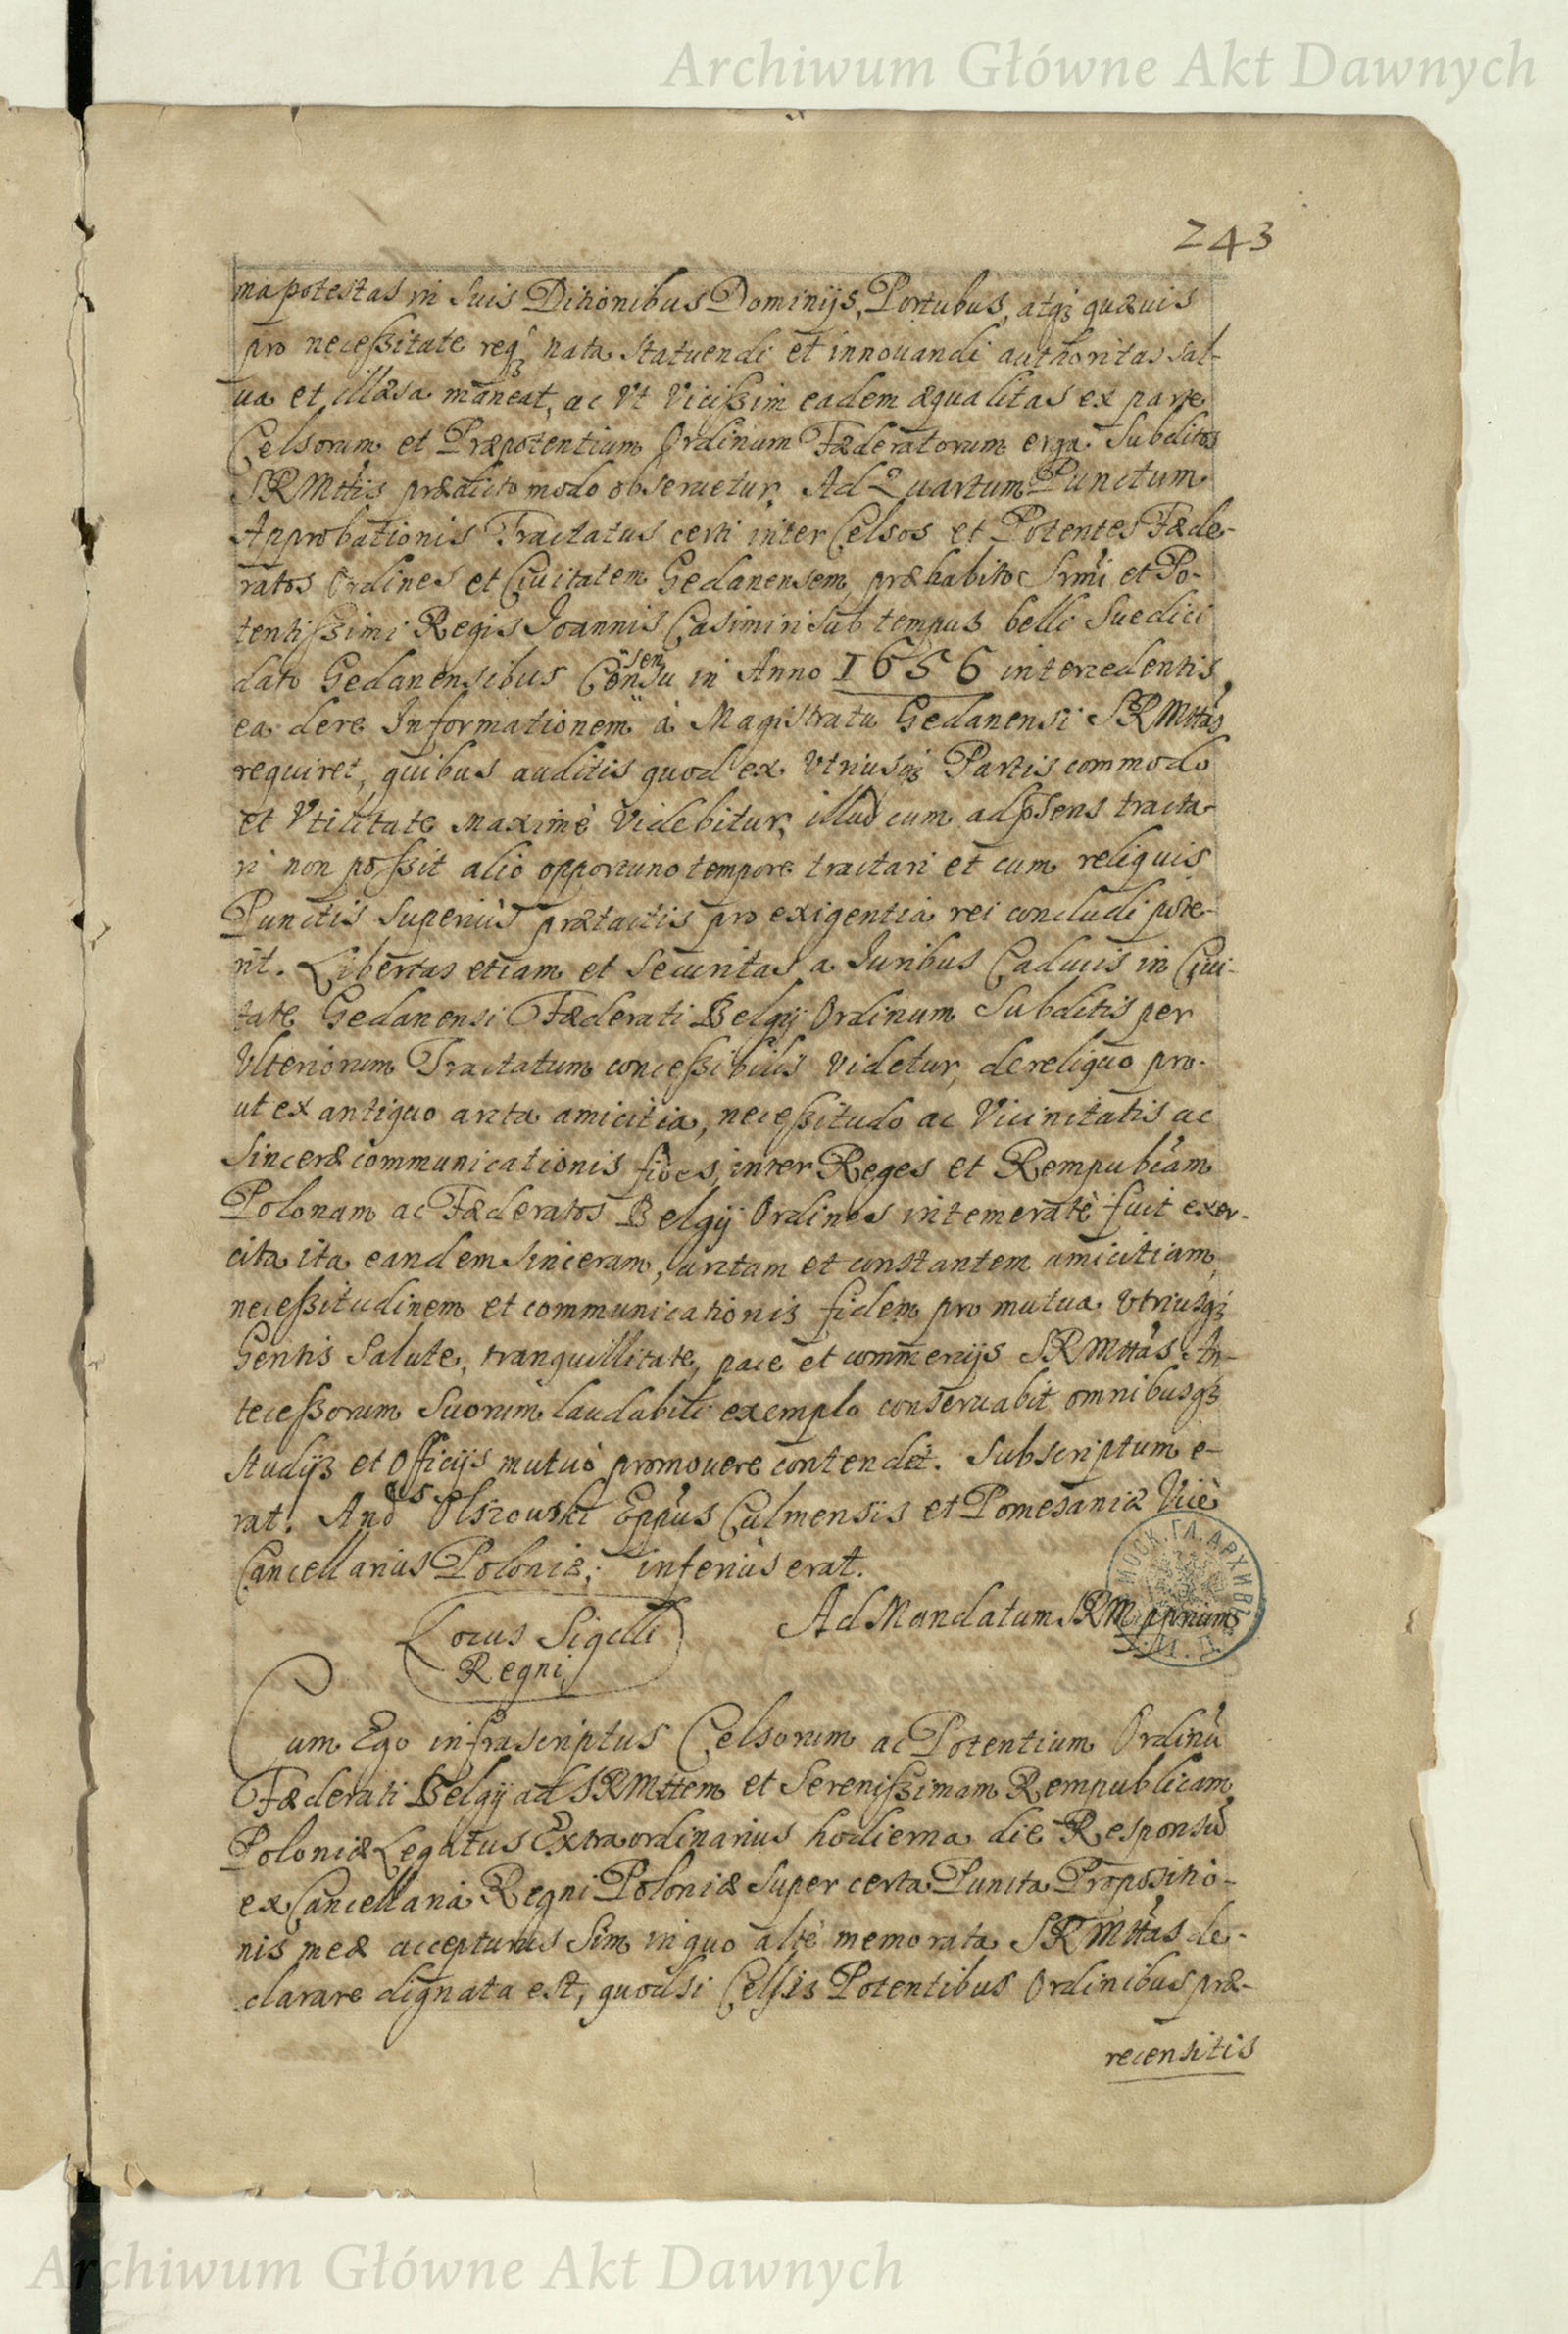 Archiwum Główne Akt Dawnych
243
ma potestas in suis Ditionibus Dominijs, Portubus, atq₃ quævis
pro neceßitate req₃ nata statuendi et innouandi authoritas sal-
ua et illæsa maneat, ac Vt Vicißim eadem æqualitas ex parte
Celsorum et Præpotentium Ordinum Fæderatorum erga Subditos
SRMttis prædicto modo obseruetur. Ad Quartum Punctum
Approbationis Tractatus certi inter Celsos et Potentes Fæde-
ratos Ordines et Ciuitatem Gedanensem, præhabito Srmi et Po-
tentißimi Regis Joannis Casimiri sub tempus belli Suedici
dato Gedanensibus Consensu in Anno 1656 intercedentis,
ea de re Informationem à Magistratu Gedanensi SRMttas
requiret, quibus auditis quod ex Vtriusq₃ Partis commodo
et Vtilitate maximè Videbitur, illud cum adpsens tracta-
ri non poßit alio opportuno tempore tractari et cum reliquis
Punctis superiùs prætactis pro exigentia rei concludi pote-
rit. Libertas etiam et securitas a Iuribus Caducis in Ciui-
tate Gedanensi Fæderati Belgij Ordinum Subditis per
Vlteriorem Tractatum conceßibilis videtur, de reliquo pro-
ut ex antiquo arcta amicitia, neceßitudo ac Vicinitatis ac
sinceræ communicationis fides, inter Reges et Rempubcam
Polonam ac Fæderatos Belgij Ordines intemeratè fuit exer-
cita ita eandem sinceram, arctam et constantem amicitiam,
neceßitudinem et communicationis fidem pro mutua Vtriusq₃
Gentis Salute, tranquillitate, pace et commercijs SRMttas An-
teceßorum Suorum laudabili exemplo conseruabit omnibusq₃
studijs et Officijs mutuò promouere contendet. Subscriptum e-
rat. Andes Olszouski Eppus Culmensis et Pomesaniæ Vice
Cancellarius Poloniæ; inferiùs erat.
Ad Mandatum SRM ppnum
Locus Sigilli
Regni
Cum Ego infrascriptus Celsorum ac Potentium Ordinū
Fæderati Belgij ad SRMttem et Serenißimam Rempublicam
Poloniæ Legatus Extraordinarius hodierna die Responsū
ex Cancellaria Regni Poloniæ super certa Puncta Propositio-
nis meæ accepturus sim in quo altè memorata SRMttas de-
clarare dignata est, quodsi Celsis Potentibus Ordinibus præ-
recensitis
Archiwum Główne Akt Dawnych